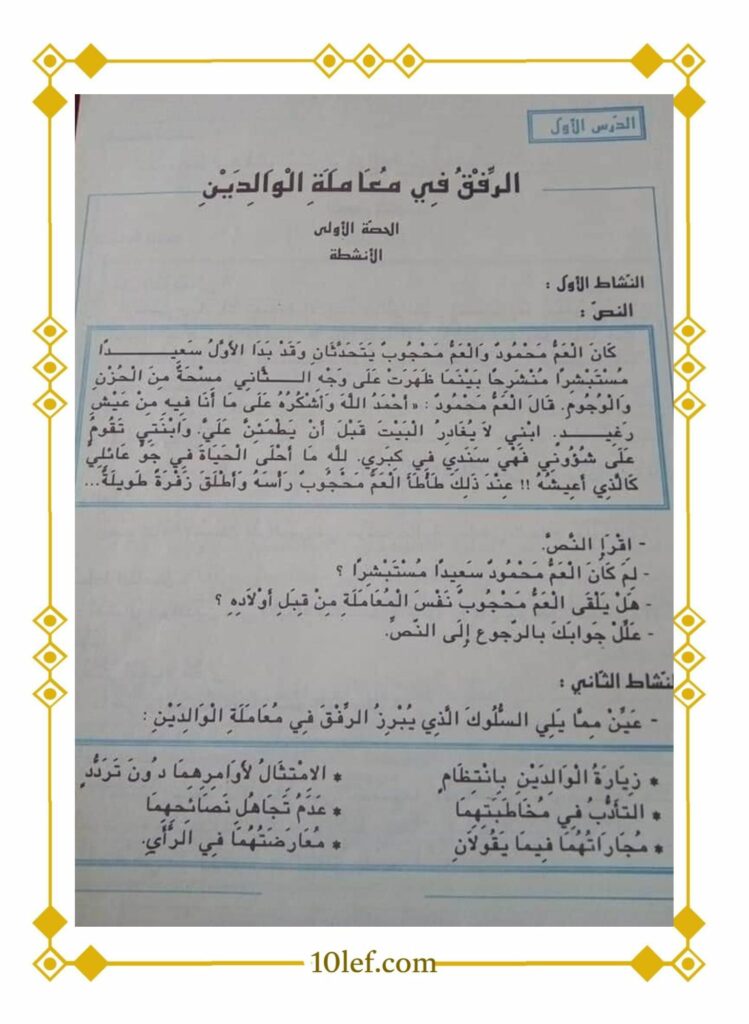 الدرس الأول
الرِّفْقُ فِي مُعَامَلَةِ الْوَالِدَيْنِ
الحصّة الأولى
الأنشطة
النّشاط الأول :
النصّ :
كَانَ الْعَمُّ مَحْمُودٌ وَالْعَمُّ مَحْجُوبٌ يَتَحَدَّثَانِ وَقَدْ بَدَا الأَوَّلُ سَعِيـــــدًا
مُسْتَبْشِرًا مُنْشَرِحًا بَيْنَمَا ظَهَرَتْ عَلَى وَجْهِ الـــثَّانِي مِسْحَةٌ مِنَ الْحُزْنِ
وَالْوُجُومِ. قَالَ الْعَمُّ مَحْمُودٌ : « أَحْمَدُ اللهَ وَأَشْكُرُهُ عَلَى مَا أَنَا فِيهِ مِنْ عَيْشٍ
رَغِيـــدٍ. ابْنِي لاَ يُغَادِرُ الْبَيْتَ قَبْلَ أَنْ يَطْمَئِنَّ عَلَيَّ. وَابْنَتِي تَقُومُ
عَلَى شُؤُونِي فَهْيَ سَنَدِي فِي كِبَرِي. للهِ مَا أَحْلَى الْحَيَاةَ فِي جَوٍّ عَائِلِيٍّ
كَالَّذِي أَعِيشُهُ !! عِنْدَ ذَلِكَ طَأْطَأَ الْعَمُّ مَحْجُوبٌ رَأْسَهُ وَأَطْلَقَ زَفْرَةً طَوِيلَةً...
- اِقْرَإِ النَّصَّ.
- لِمَ كَانَ الْعَمُّ مَحْمُودٌ سَعِيدًا مُسْتَبْشِرًا ؟
- هَلْ يَلْقَى الْعَمُّ مَحْجُوبٌ نَفْسَ الْمُعَامَلَةِ مِنْ قِبَلِ أَوْلاَدِهِ ؟
- عَلِّلْ جَوَابَكَ بِالرُّجوعِ إِلَى النَّصِّ.
النّشاط الثّاني :
- عَيِّنْ مِمَّا يَلِي السُّلُوكَ الَّذِي يُبْرِزُ الرِّفْقَ فِي مُعَامَلَةِ الْوَالِدَيْنِ :
* زِيَارَةُ الْوَالِدَيْنِ بِانْتِظَامٍ * الامْتِثَالُ لأَوَامِرِهِمَا دُونَ تَرَدُّدٍ
* التَأَدُّبُ فِي مُخَاطَبَتِهِمَا * عَدَمُ تَجَاهُلِ نَصَائِحِهِمَا
* مُجَارَاتُهُمَا فِيمَا يَقُولاَنِ * مُعَارَضَتُهُمَا فِي الرَّأْيِ.
10lef.com